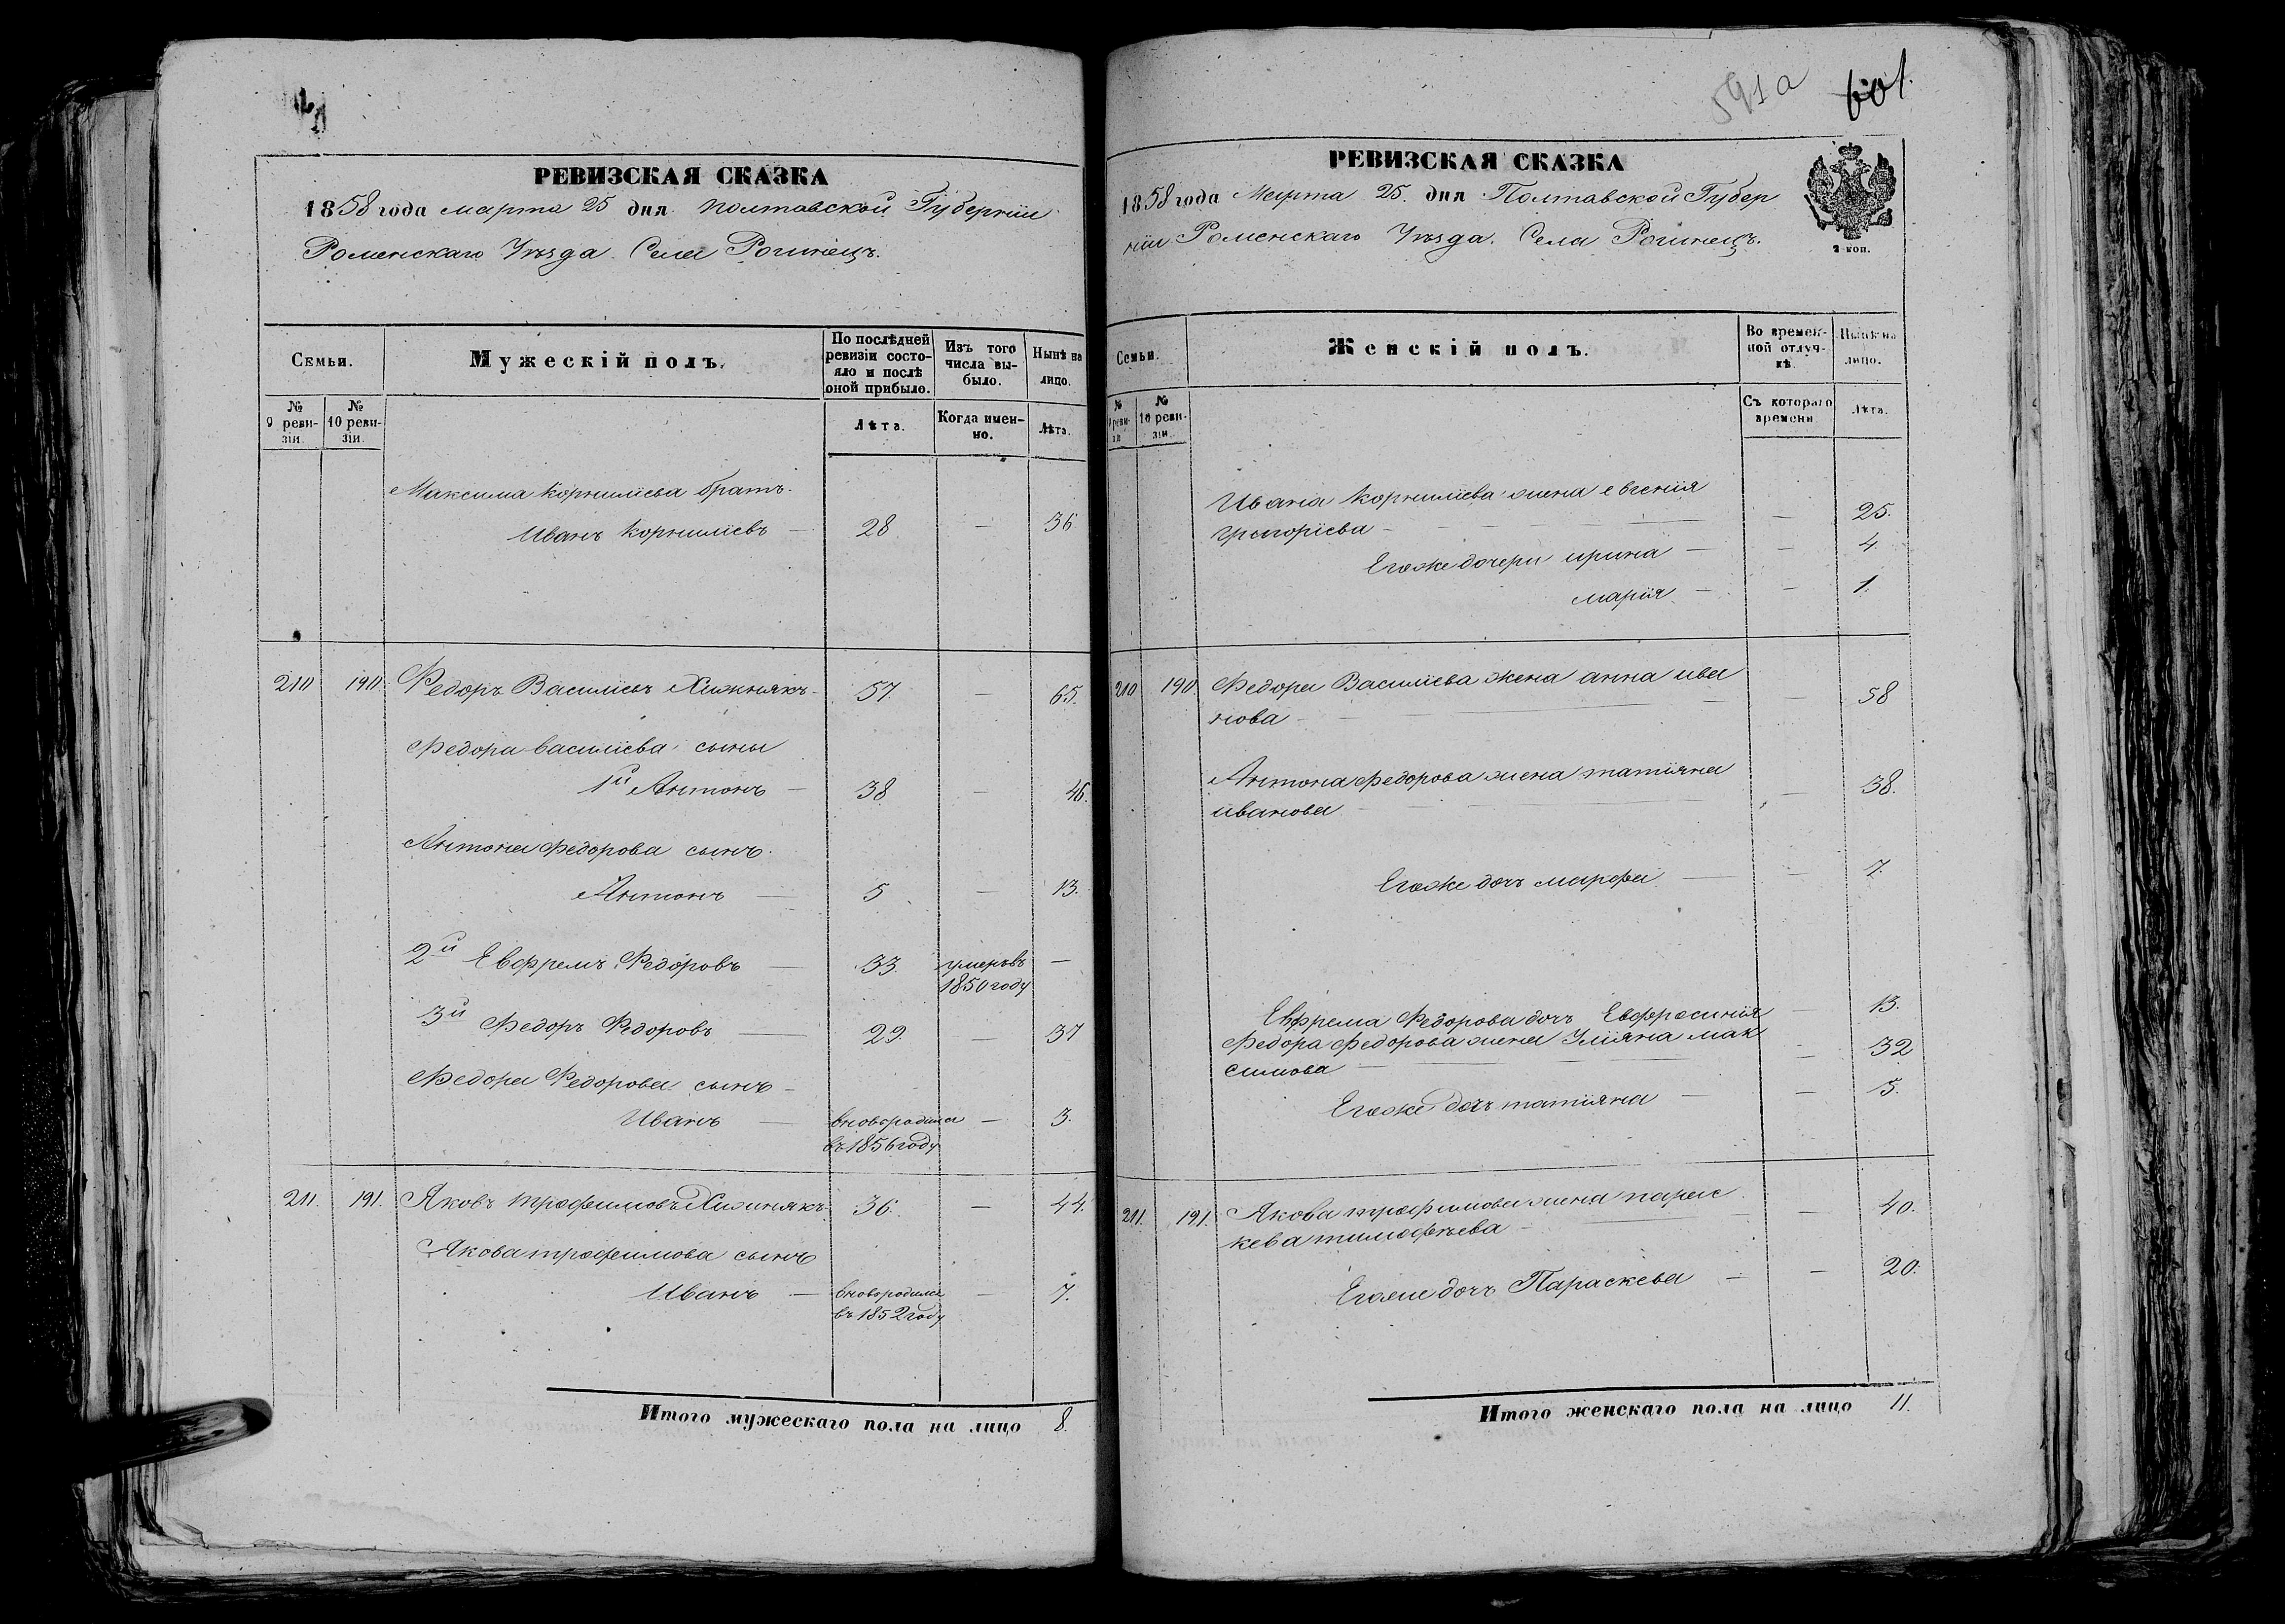 РЕВИЗСКАЯ СКАЗКА
1858 года марта 25 дня Полтавской Губерніи
Роменскаго Уѣзда. Села Рогинецъ.
Семьи.
Мужескій полъ.
По послѣдней ревизіи состояло и послѣ оной прибыло.
Изъ того числа выбыло.
Нынѣ на лицо.
№ 9 ревизіи.
№ 10 ревизіи.
Лѣта.
Когда именно.
Лѣта.
Максима Корниліева братъ.
Иванъ Корниліевъ — 28 — 36
210 190. Федоръ Василіевъ Хижнякъ 57. — 65.
Федора Василіева сыны
1й Антонъ — 38 — 46.
Антона Федорова сынъ.
Антонъ — 5 — 13.
2й Евфремъ Федоровъ — 33. умеръ въ —
1850 году
3й Федоръ Федоровъ — 29. — 37
Федора Федорова сынъ —
Иванъ — вновородился — 3.
въ 1856 году
211. 191. Яковъ Трофимовъ Хижнякъ 36. — 44.
Якова Трофимова сынъ
Иванъ — вновородился — 7.
въ 1852 году
Итого мужескаго пола на лицо 8.
591а 601.
РЕВИЗСКАЯ СКАЗКА
1858 года Марта 25. дня Полтавской Губер
ніи Роменскаго Уѣзда. Села Рогинецъ.
2 коп.
Семьи.
Женскій полъ.
Во временной отлучкѣ.
Нынѣ на лицо.
№ 9 ревизіи
№ 10 ревизіи.
Съ котораго времени
Лѣта.
Ивана Корниліева жена евгенія
Григоріева — — 25.
Егоже дочери ирина — — 4.
марія — — 1.
210 190 Федора Василіева жена анна ива
нова — — 58
Антона Федорова жена татіяна
иванова — — 38.
Егоже дочь марфа — — 7.
Евфрема Федорова дочь Евфросинія — 13.
Федора Федорова жена Уліяна мак
симова — — 32
Егоже дочь татіяна — — 5.
211. 191. Якова трофимова жена парас
кева тимофѣева — — 40.
Егоже дочь Параскева — — 20.
Итого женскаго пола на лицо 11.